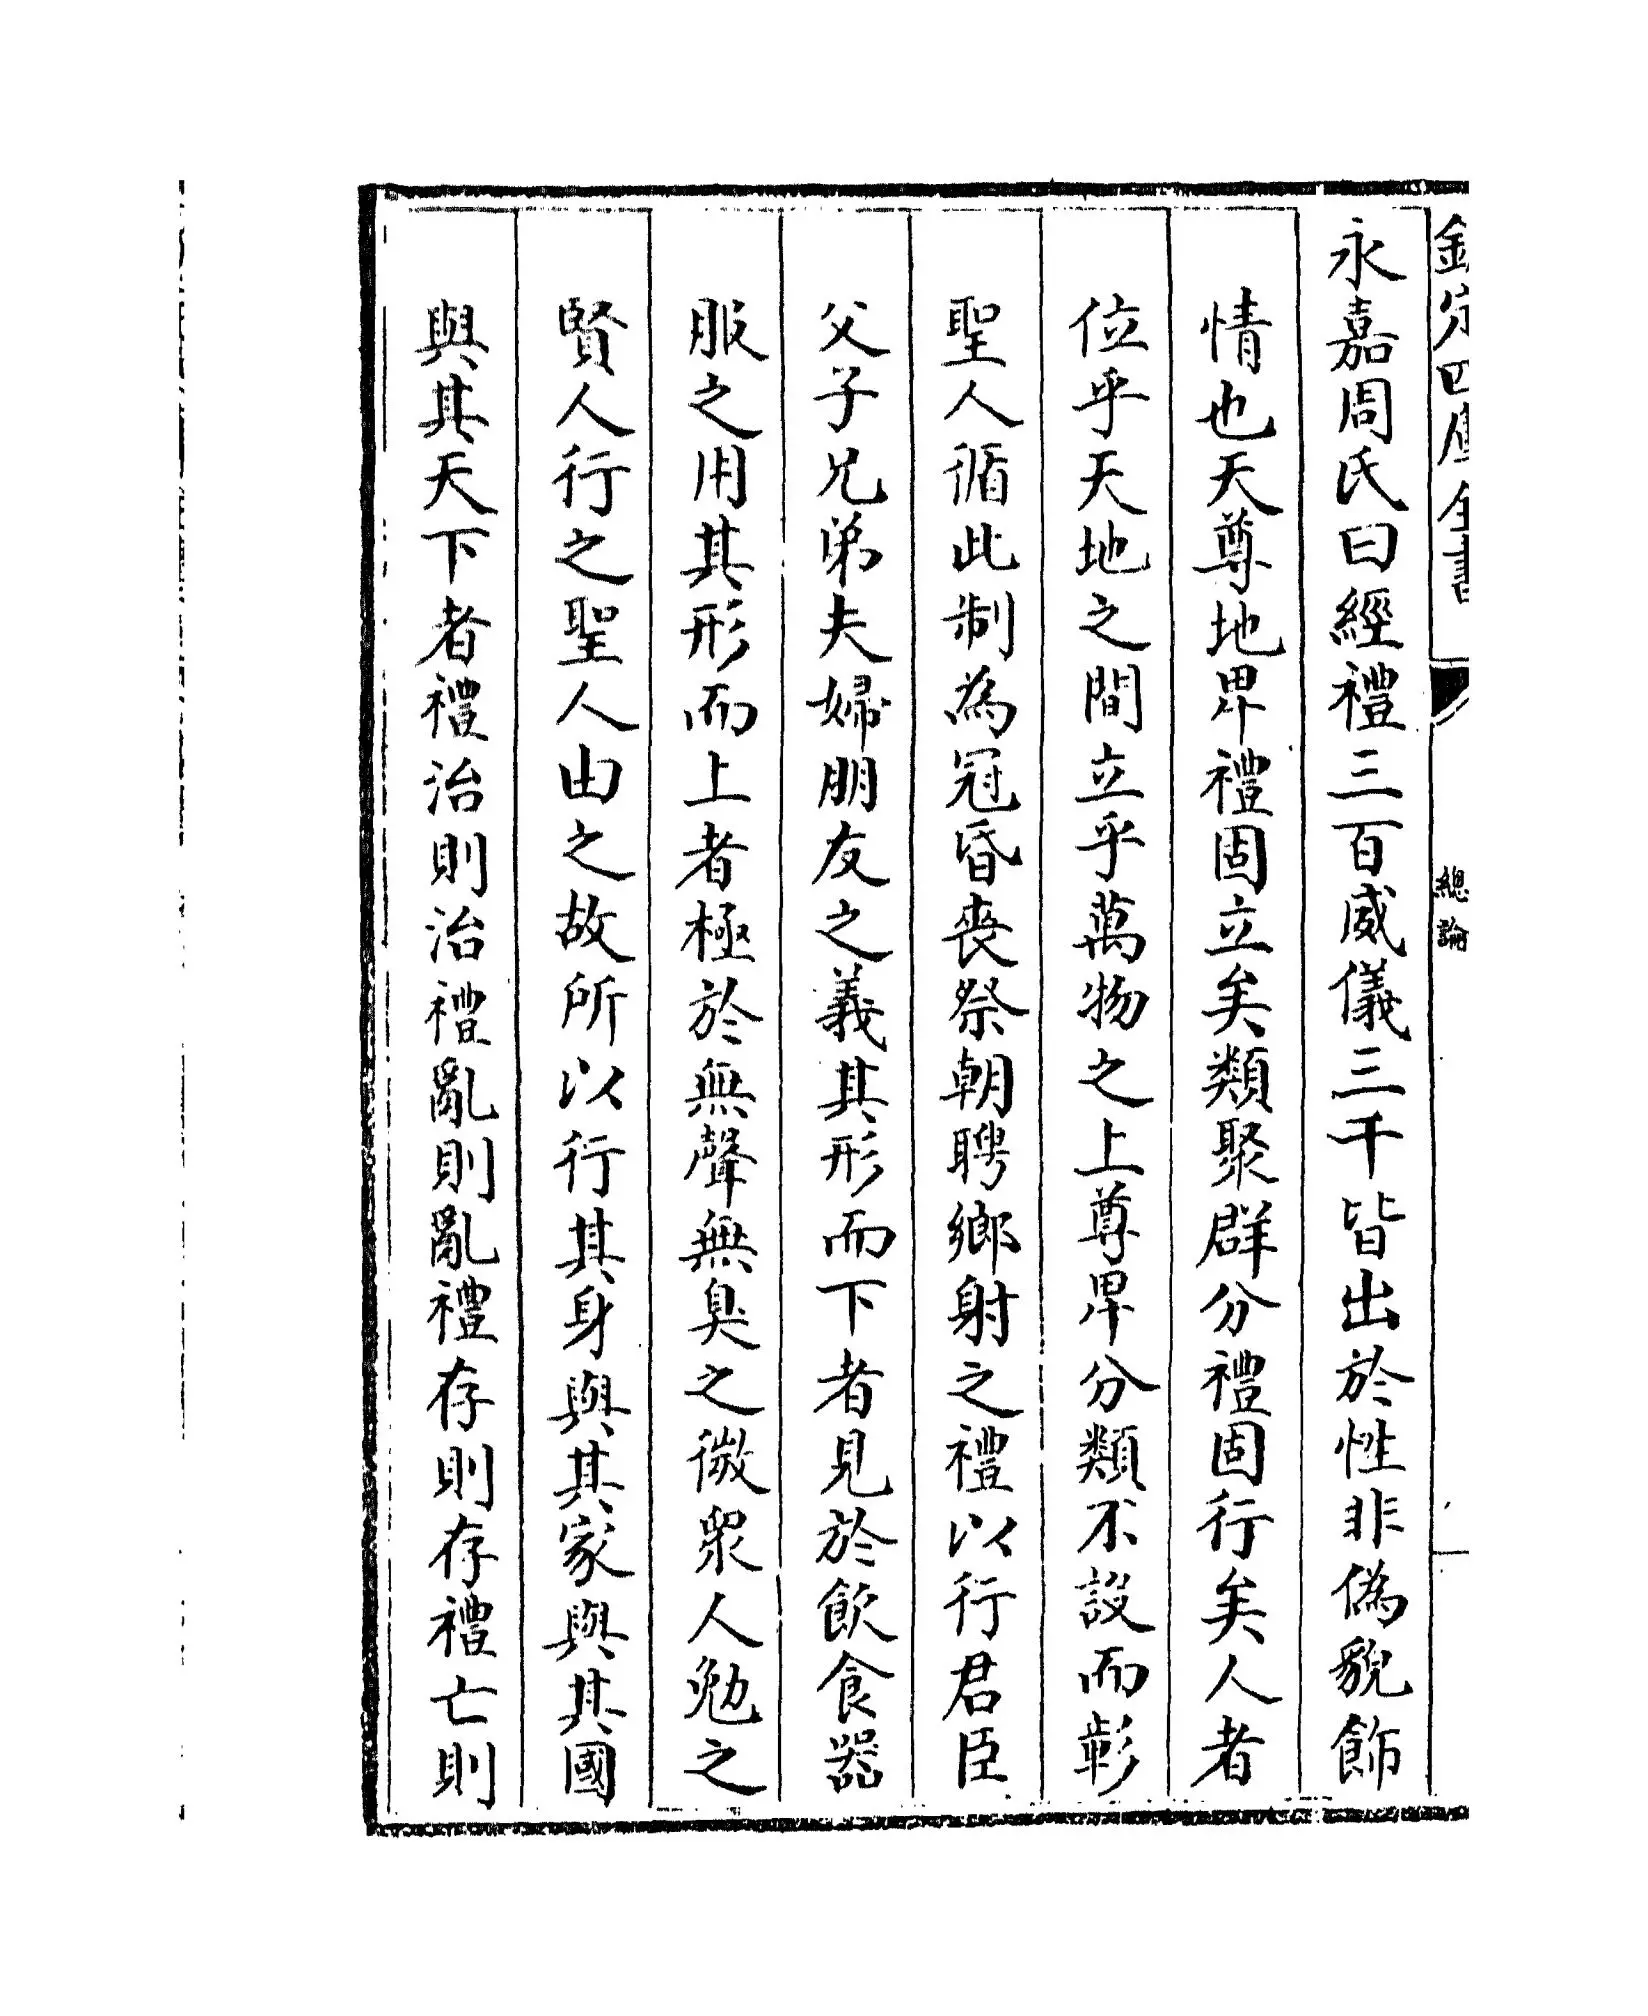 欽定四庫全書
總論
永嘉周氏曰經禮三百威儀三千皆出於性非偽貌飾
情也天尊地卑禮固立矣類聚群分禮固行矣人者
位乎天地之間立乎萬物之上尊卑分類不設而彰
聖人循此制為冠昏喪祭朝聘鄉射之禮以行君臣
父子兄弟夫婦朋友之義其形而下者見於飲食器
服之用其形而上者極於無聲無臭之微衆人勉之
賢人行之聖人由之故所以行其身與其家與其國
與其天下者禮治則治禮亂則亂禮存則存禮亡則